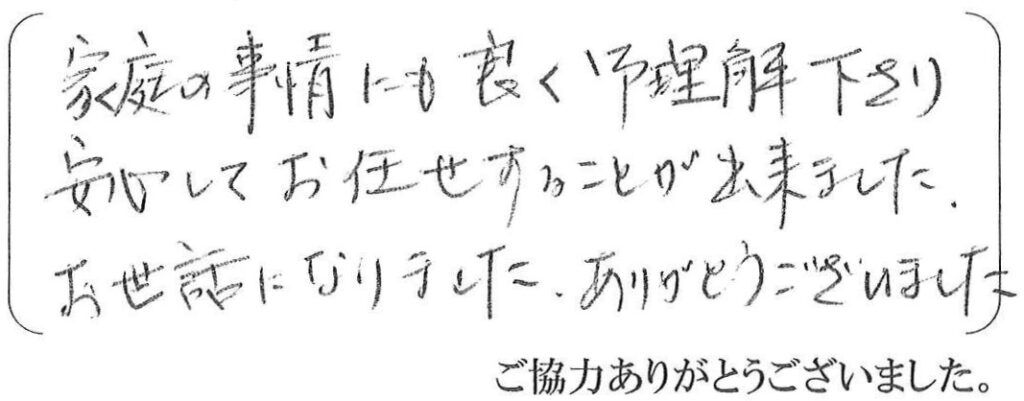 家庭の事情にも良くご理解下さり
安心してお任せすることが出来ました.
お世話になりました.ありがとうございました
ご協力ありがとうございました。